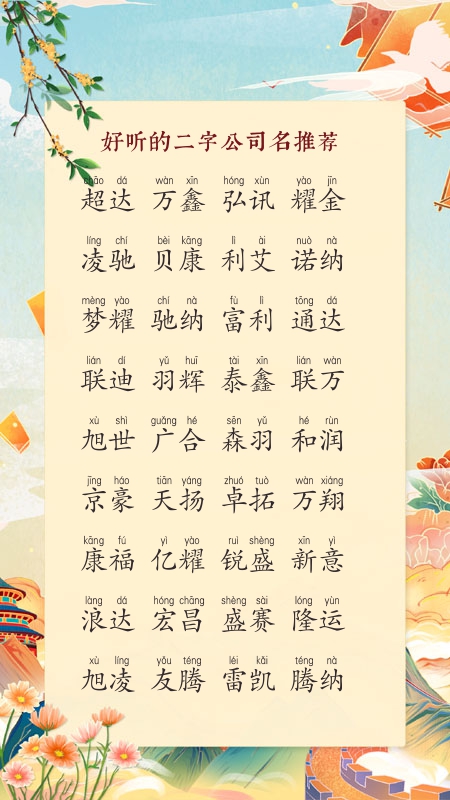 好听的二字公司名推荐
chāo dá wàn xīn hóng xùn yào jīn
超达 万鑫 弘讯 耀金
líng chí bèi kāng lì ài nuò nà
凌驰 贝康 利艾 诺纳
mèng yào chí nà fù lì tōng dá
梦耀 驰纳 富利 通达
lián dí yǔ huī tài xīn lián wàn
联迪 羽辉 泰鑫 联万
xù shì guǎng hé sēn yǔ hé rùn
旭世 广合 森羽 和润
jīng háo tiān yáng zhuó tuò wàn xiáng
京豪 天扬 卓拓 万翔
kāng fú yì yào ruì shèng xīn yì
康福 亿耀 锐盛 新意
làng dá hóng chāng shèng sài lóng yùn
浪达 宏昌 盛赛 隆运
xù líng yǒu téng léi kǎi téng nà
旭凌 友腾 雷凯 腾纳